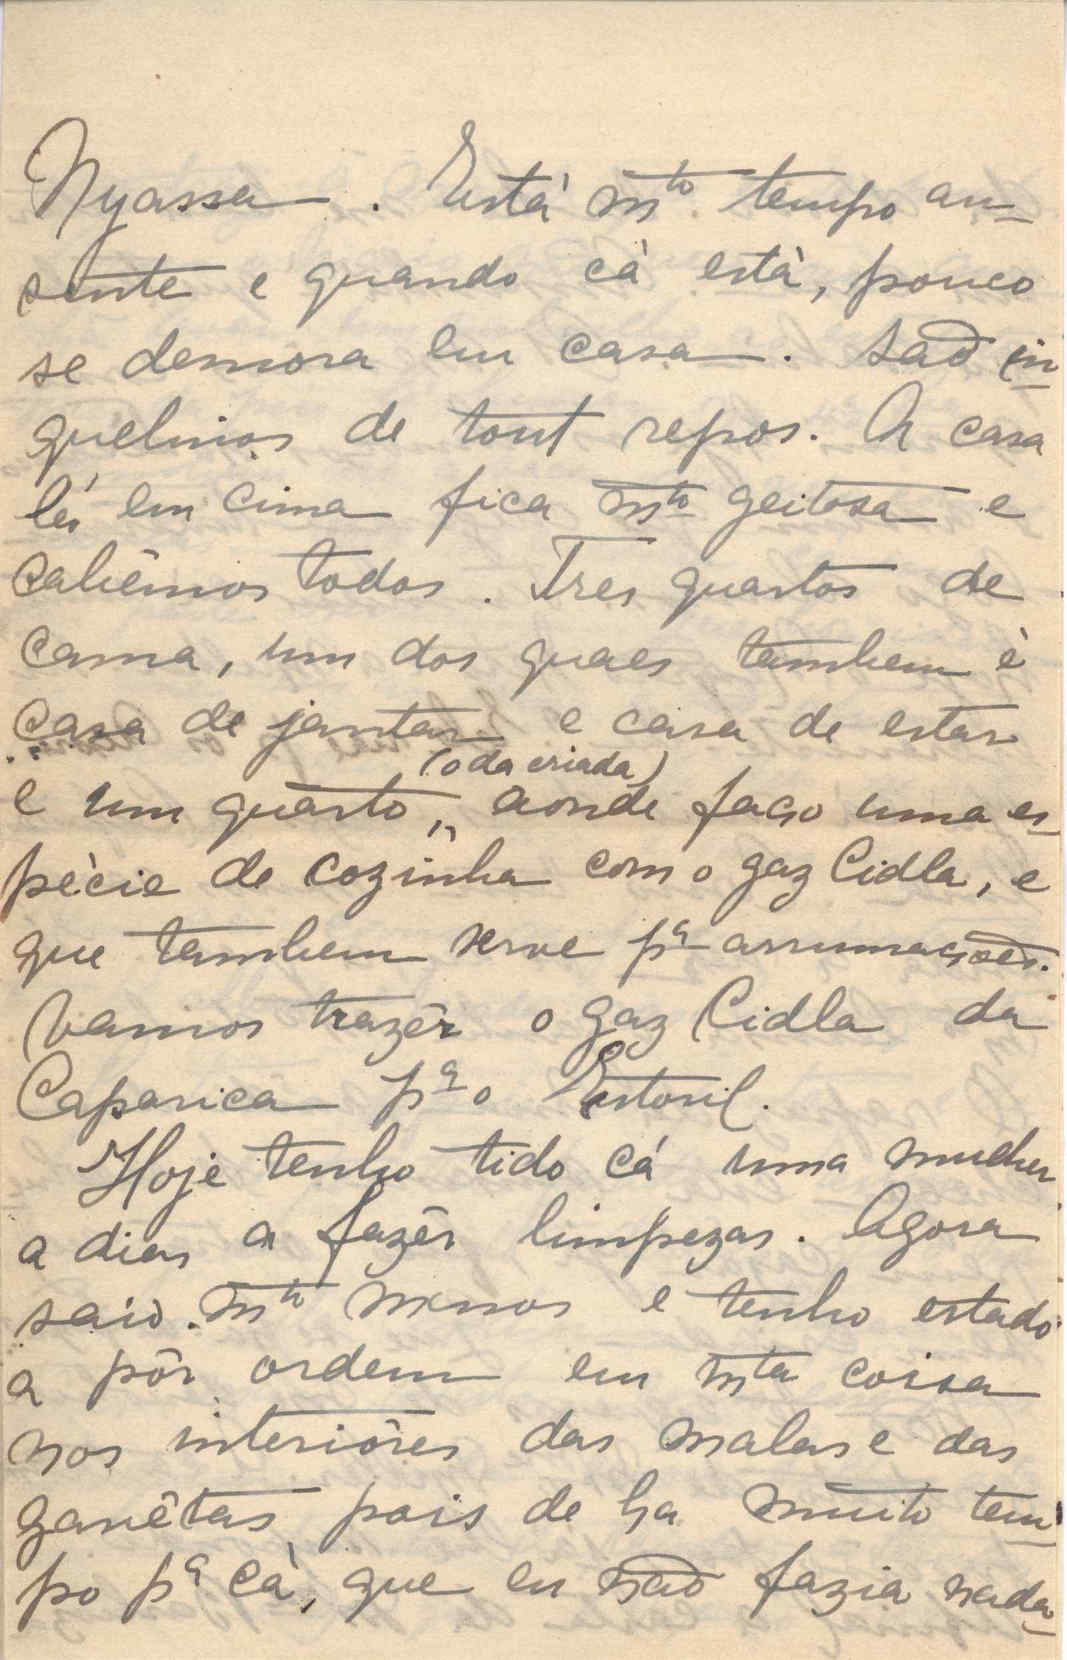 Nyassa. Está mto tempo au-
sente e quando cà està, pouco
se demora em casa. Saõ in-
quelinos de tout repos. A casa
lá em cima fica mto geitosa e
cabêmos todos. Tres quartos de
cama, um dos quaes tambem è
casa de jantar e casa de estar
(o da criada)
e um quarto, aonde faço uma es-
pècie de cozinha com o gaz Cidla, e
que tambem serve pa arrumações.
Vamos trazêr o gaz Cidla da
Caparica pa o Estoril.
Hoje tenho tido cá uma mulher
a dias a fazêr limpezas. Agora
saio mto menos e tenho estado
a pôr ordem em mta coisa
nos interiôres das malas e das
gavêtas pois de ha muito tem-
po pa cà, que eu naõ fazia nada